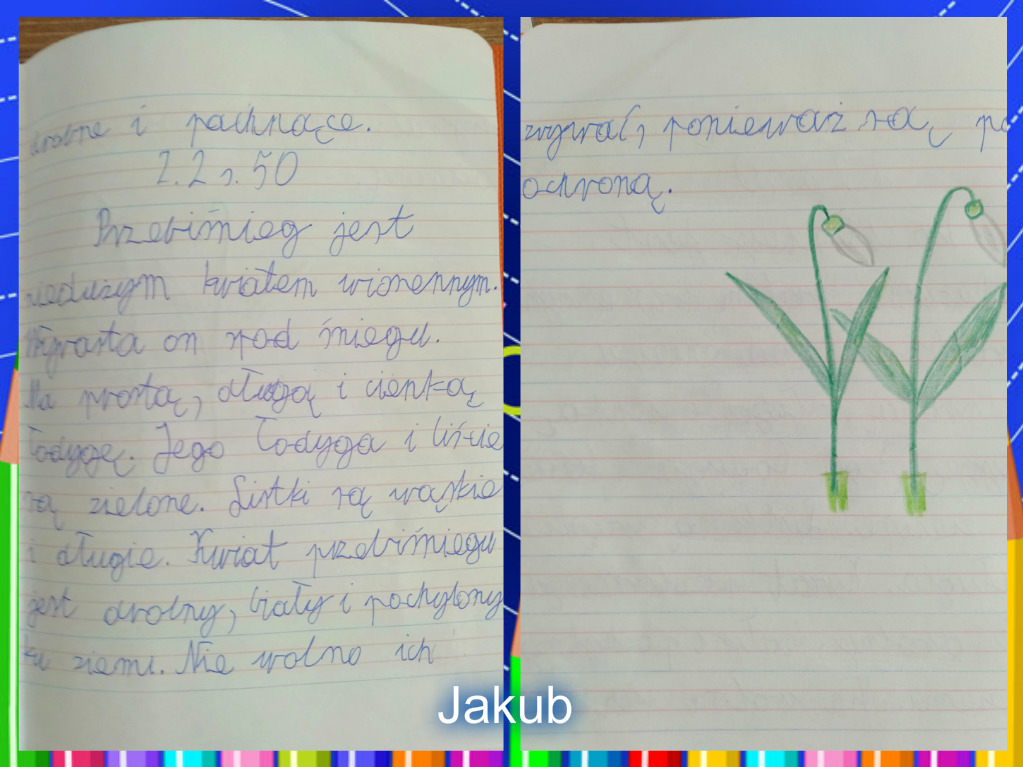 drobne i pachnące.
Z. 2 s. 50
Przebiśnieg jest
niedużym kwiatem wiosennym.
Wyrasta on spod śniegu.
Ma prostą, długą i cienką
łodygę. Jego łodyga i liście
są zielone. Listki są wąskie
i długie. Kwiat przebiśniegu
jest drobny, biały i pochylony
ku ziemi. Nie wolno ich
zrywać, ponieważ są po
ochroną.
Jakub